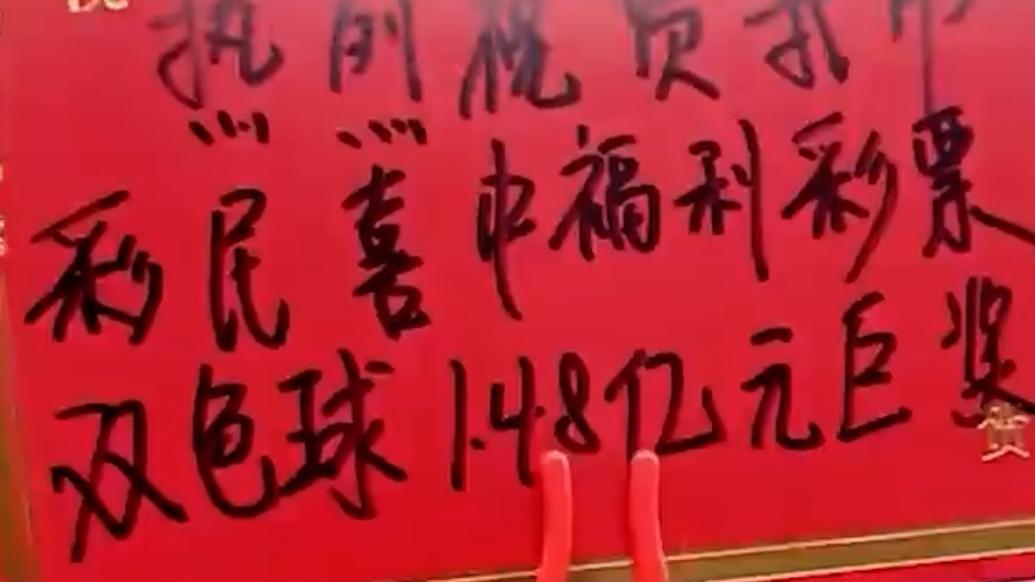 热烈祝贺我市
彩民喜中福利彩票
双色球1.48亿元巨奖
贺